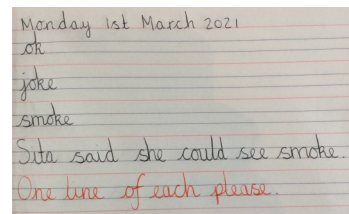 Monday 1st March 2021
ok
joke
smoke
Sita said she could see smoke.
One line of each please.